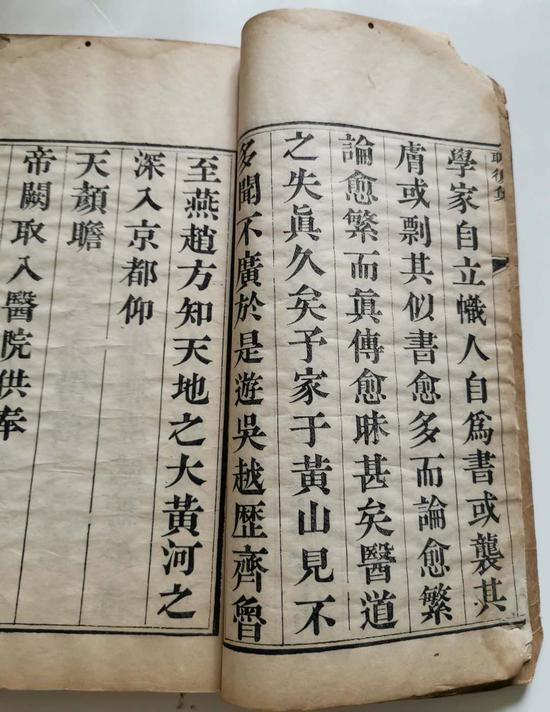 學家自立幟人自爲書或襲其
膚或剽其似書愈多而論愈繁
論愈繁而眞傳愈昧甚矣醫道
之失眞久矣予家于黃山見不
多聞不廣於是遊吳越歷齊魯
至燕趙方知天地之大黃河之
深入京都仰
天顏瞻
帝闕取入醫院供奉